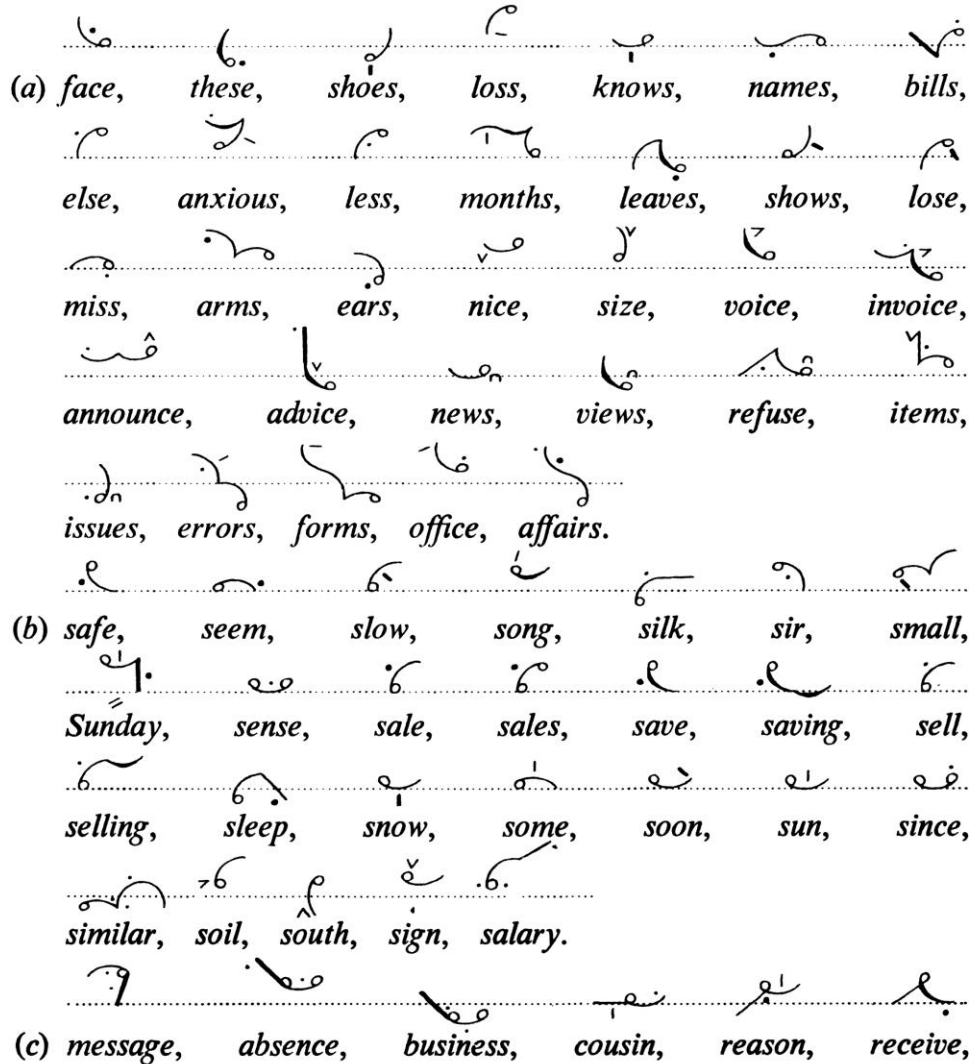 (a) face, these, shoes, loss, knows, names, bills,
else, anxious, less, months, leaves, shows, lose,
miss, arms, ears, nice, size, voice, invoice,
announce, advice, news, views, refuse, items,
issues, errors, forms, office, affairs.
(b) safe, seem, slow, song, silk, sir, small,
Sunday, sense, sale, sales, save, saving, sell,
selling, sleep, snow, some, soon, sun, since,
similar, soil, south, sign, salary.
(c) message, absence, business, cousin, reason, receive,